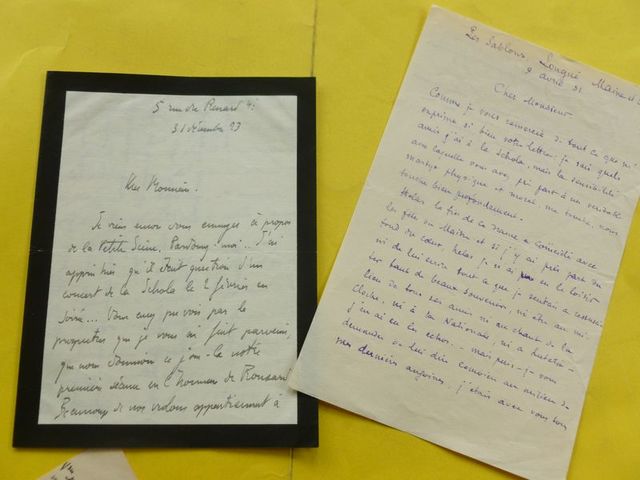 5 rue du Renard 4:
31 décembre 23
Cher Monsieur.
Je viens encor vous ennuyer à propos
de la Petite Scène. Pardonnez-moi... J'ai
appris hier qu'il était question d'un
concert de la Schola le 2 février en
soirée... Vous avez pu voir par le
prospectus que je vous ai fait parvenir,
que nous donnions ce jour-là notre
première séance en l'honneur de Ronsard
Beaucoup de nos violons appartiennent à
Les Sablons, Longué Maine et
9 avril 31
Cher Monsieur
Comme je vous remercie de tout ce que m'
exprime si bien votre lettre. Je sais quels
amis j'ai à la Schola, mais la sensibilité
avec laquelle vous avez pris part à un véritable
martyr physique et moral me touche
touche bien profondément.
Hélas la fin de ce drame a coïncidé avec
la fête du Maître et si j'y ai pris part du
fond du cœur, hélas je n'ai pas eu le loisir
ni de lui écrire tout ce que je sentais
ter tant de beaux souvenirs, ni être au mi
lieu de tous ses amis ni au chant de la
Cloche, ni à la Nationale, ni à
j'en ai eu les échos... mais puis-je vous
demander de lui dire combien au milieu de
mes derniers angoisses, j'étais avec vous tous